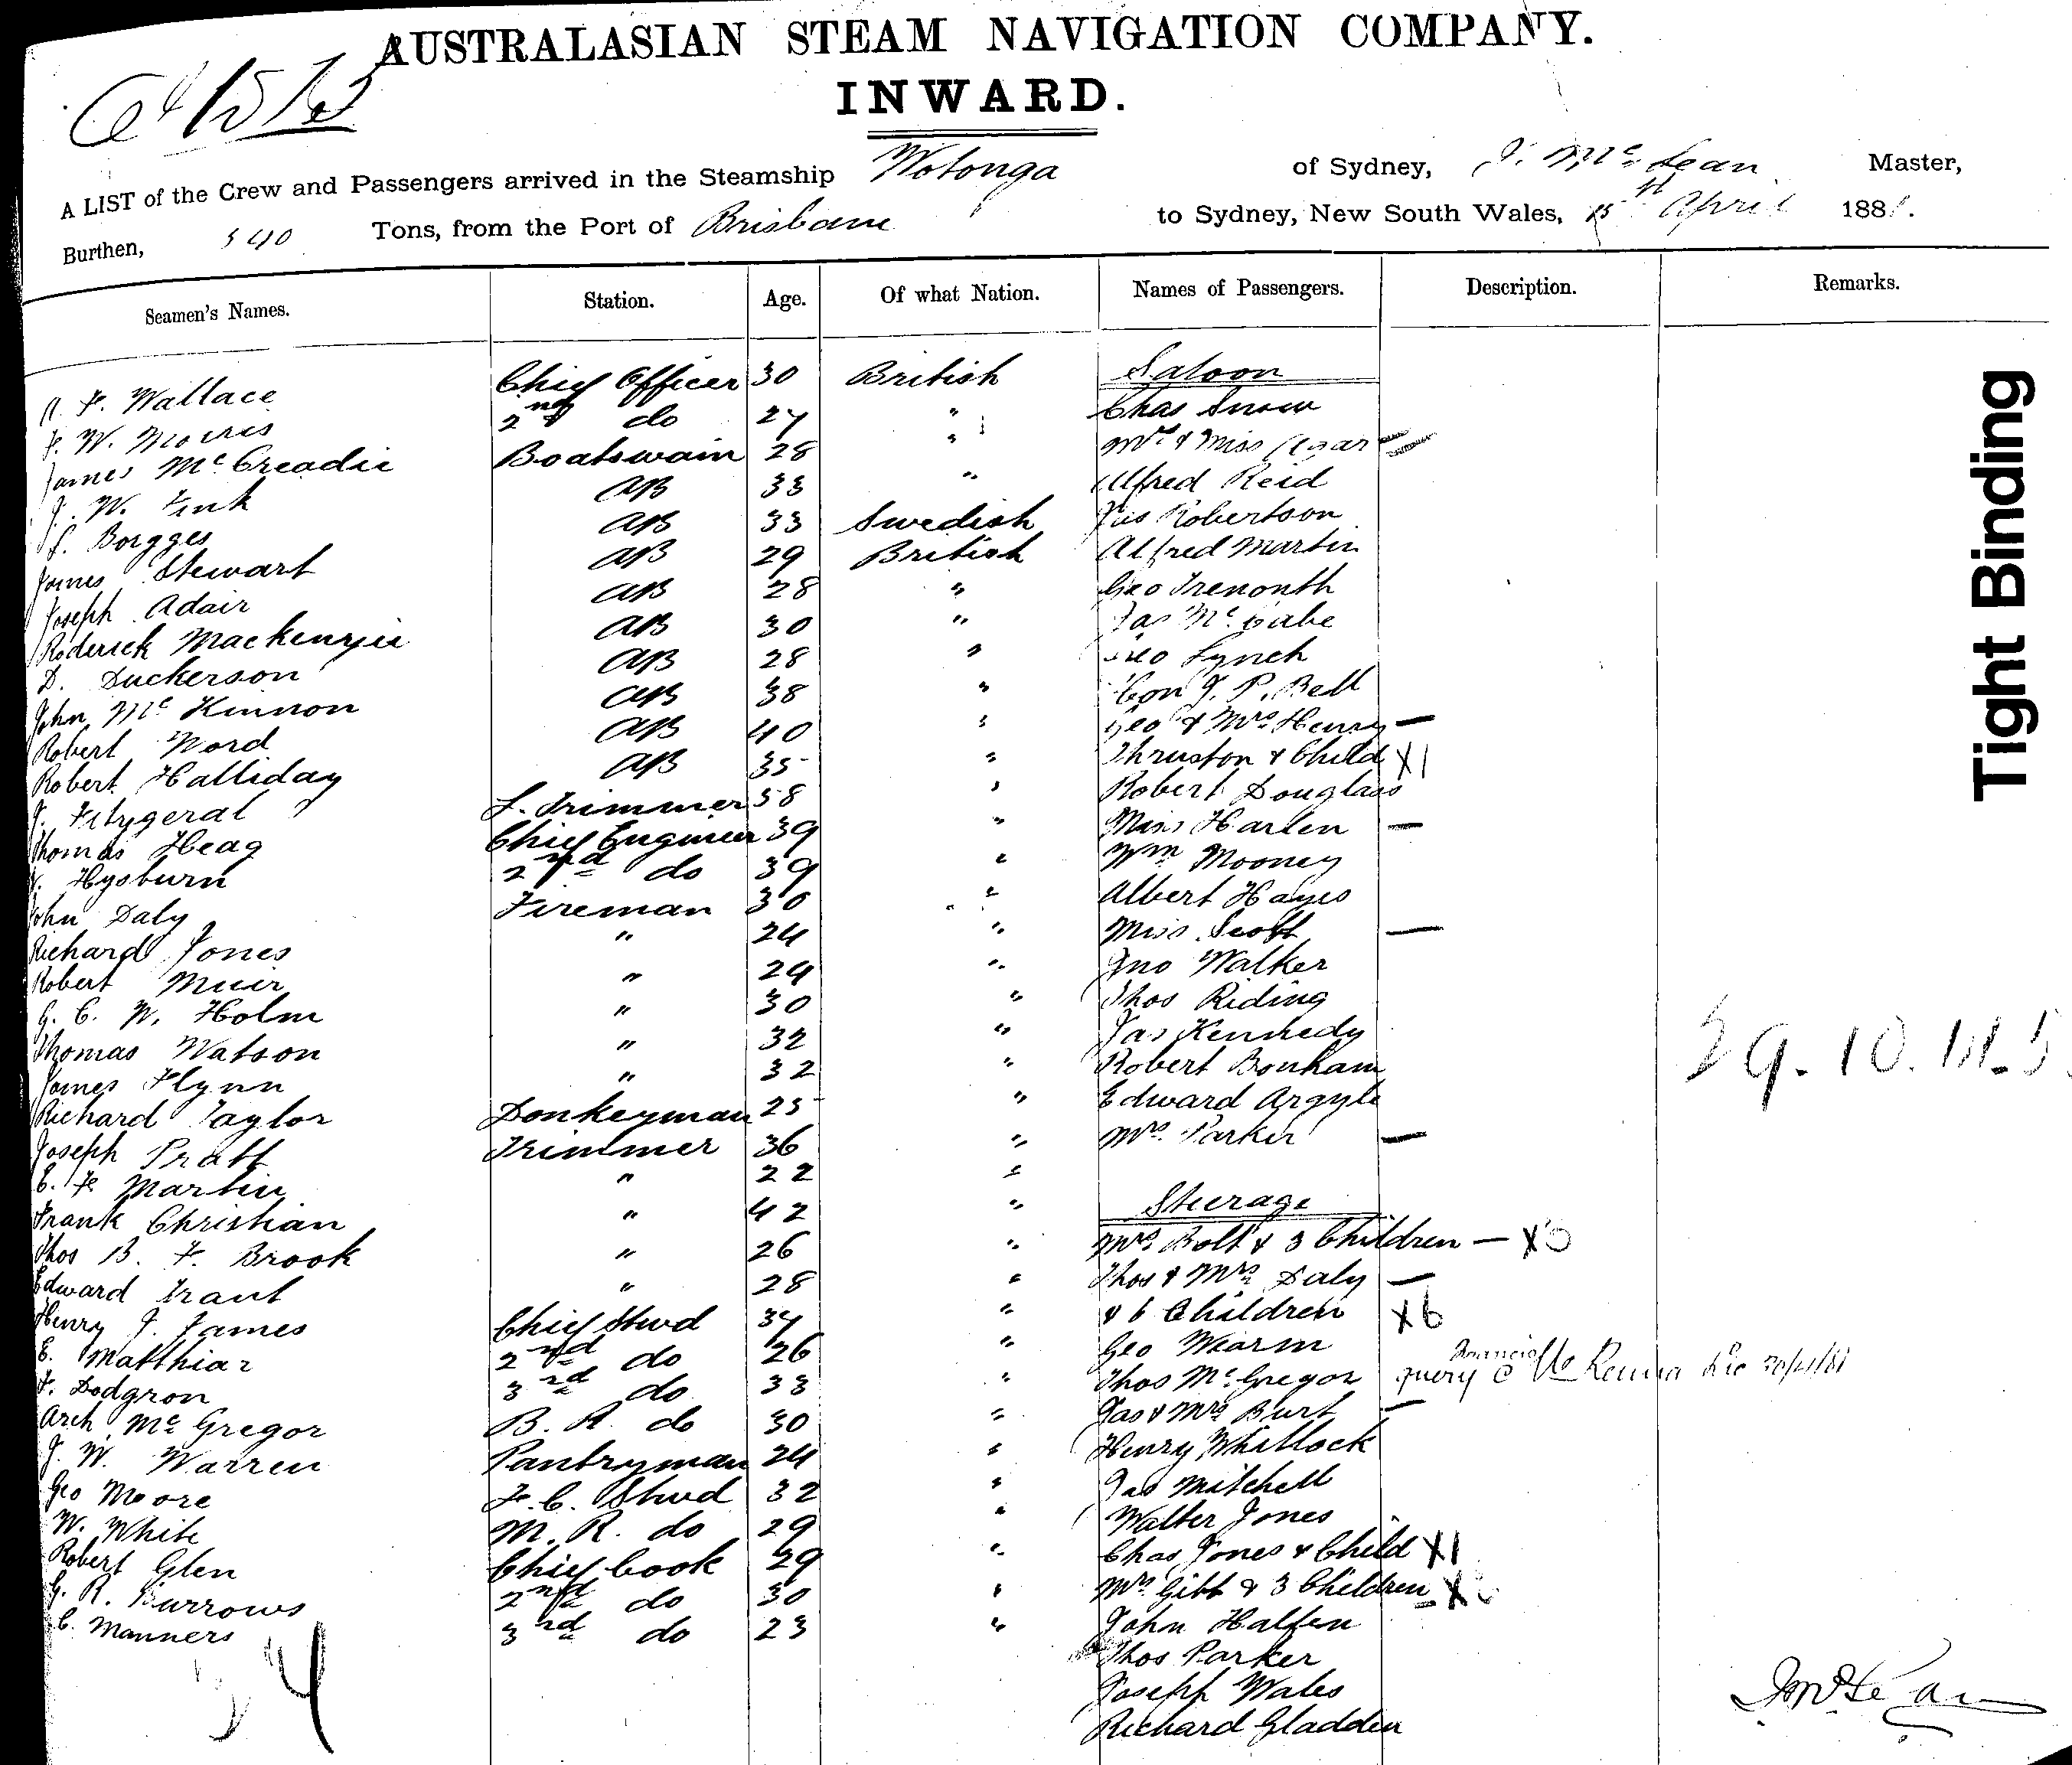 AUSTRALASIAN STEAM NAVIGATION COMPANY.
INWARD.
A LIST of the Crew and Passengers arrived in the Steamship Wotonga of Sydney, J. McLean Master,
Burthen, 540 Tons, from the Port of Brisbane to Sydney, New South Wales, April 1881.
Seamen's Names. Station. Age. Of what Nation. Names of Passengers. Description. Remarks.
Saloon
Wallace Chief Officer 30 British Chas Snow
W. Morris 2nd do 27 " Mrs & Miss
James McCreadie Boatswain 28 " Alfred Reid
J. W. Fink AB 33 " Jas Robertson
Borgges AB 33 Swedish Alfred Martin
James Stewart AB 29 British Geo Trenouth
Joseph Adair AB 28 " Jas McCabe
Roderick Mackenzie AB 30 " Geo Lynch
D. Duckerson AB 28 " Con J. P. Bell
John McKinnon AB 38 " Geo & Mrs Henry —
Robert Word AB 40 " Thruston & Child X1
Robert Halliday AB 35 " Robert Douglass
J. Fitzgeral L. Trimmer 58 " Miss Harlen —
Thomas Heag Chief Engineer 39 " Wm Mooney
Hysburn 2nd do 39 " Albert Hayes
John Daly Fireman 30 " Miss Scott —
Richard Jones " 24 " Jno Walker
Robert Muir " 24 " Thos Riding
G. C. W. Holm " 30 " Jas Kennedy
Thomas Watson " 32 " Robert Bonham
James Flynn " 32 " Edward Argyle
Richard Taylor Donkeyman 25 " Mrs Parker —
Joseph Pratt Trimmer 36 "
C. F. Martin " 22 " Steerage
Frank Christian " 42 " Mrs Bolt & 3 Children — X3
Thos B. F. Brook " 26 " Thos & Mrs Daly —
Edward Trant " 28 " & 6 Children X6
Henry J. James Chief Stwd 37 " Geo Wearm
E. Matthias 2nd do 26 " Thos McGregor query
F. Dodgson 3rd do 33 " Jas & Mrs Burt —
Arch McGregor B. R. do 30 " Henry Whitlock
J. W. Warren Pantryman 24 " Jas Mitchell
Geo Moore F. C. Stwd 32 " Walter Jones
W. White M. R. do 29 " Chas Jones & Child X1
Robert Glen Chief Cook 29 " Mrs Gibb & 3 Children X3
G. R. Burrows 2nd do 30 " John Halfen
C. Manners 3rd do 23 " Thos Parker
Joseph Wales
Richard Gladden
J McLean
Tight Binding